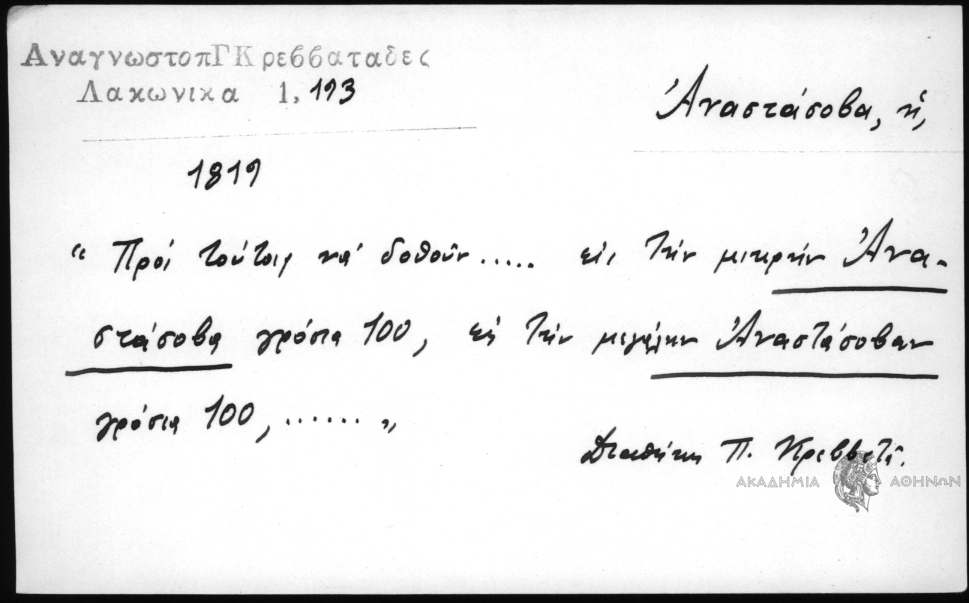 ΑναγνωστοπΓΚρεββαταδες
Λακωνικα 1, 193
Ἀναστάσοβα, ἡ,
1819
“ Πρὸς τούτοις νά δοθοῦν ..... εἰς τὴν μικρὴν Ἀνα-
στάσοβα γρόσια 100, εἰς τὴν μεγάλην Ἀναστάσοβαν
γρόσια 100, ...... „
Διαθήκη Π. Κρεββατᾶ.
ΑΚΑΔΗΜΙΑ ΑΘΗΝΩΝ